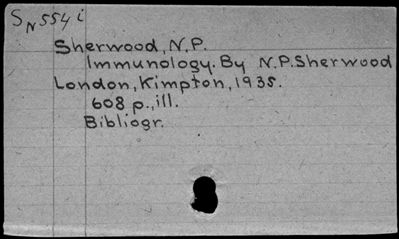 SN554i
Sherwood, N.P.
Immunology. By N.P. Sherwood
London, Kimpton, 1935.
608 p., ill.
Bibliogr.